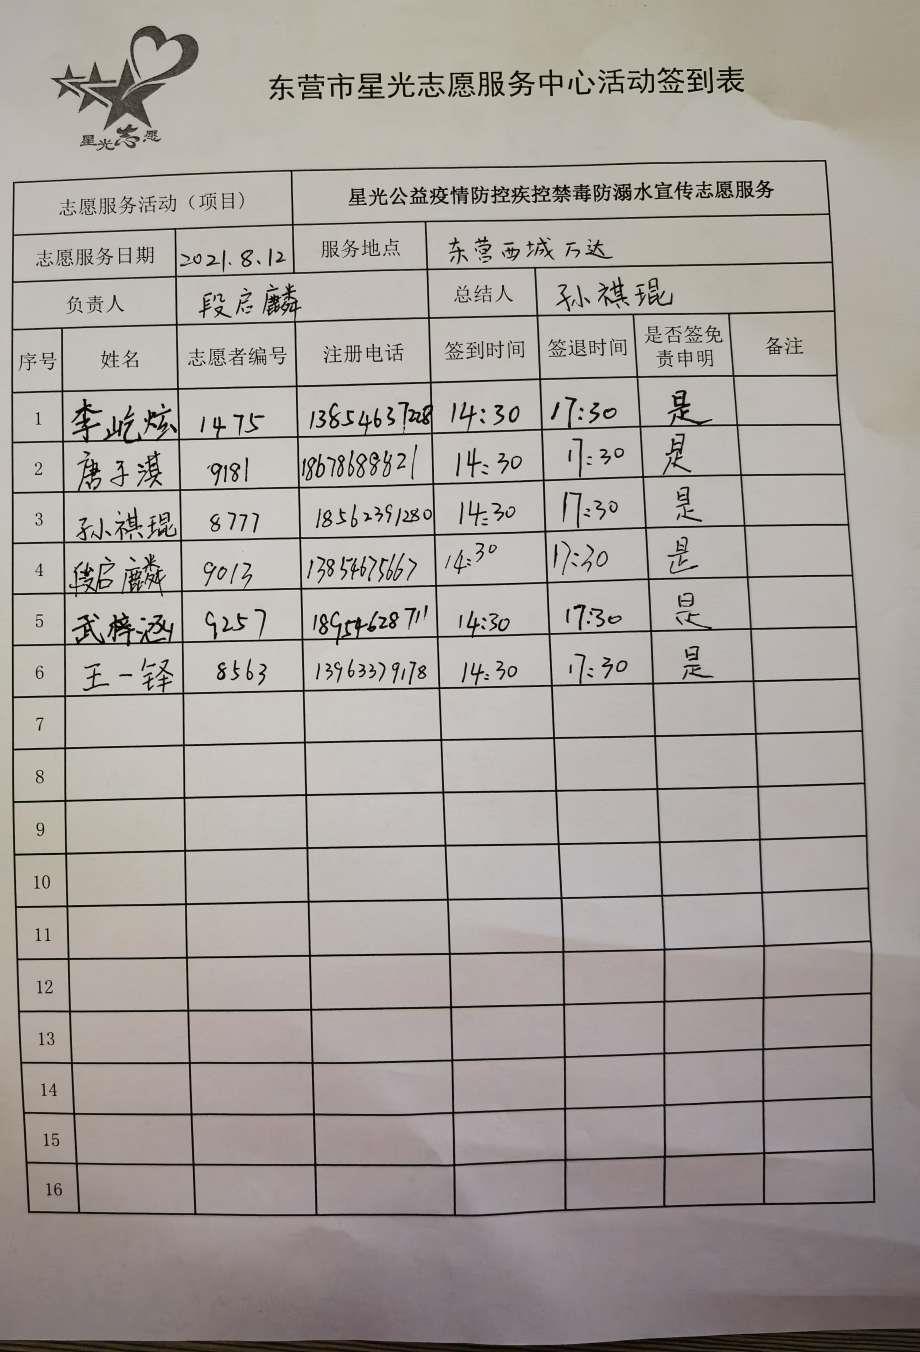 星光志愿
东营市星光志愿服务中心活动签到表
志愿服务活动（项目） 星光公益疫情防控疾控禁毒防溺水宣传志愿服务
志愿服务日期 2021.8.12 服务地点 东营西城万达
负责人 段启麟 总结人 孙祺琨
序号 姓名 志愿者编号 注册电话 签到时间 签退时间 是否签免责申明 备注
1 李屹炫 1475 13854637228 14:30 17:30 是
2 唐子淇 9181 18678688821 14:30 17:30 是
3 孙祺琨 8777 18562391280 14:30 17:30 是
4 段启麟 9013 13854675667 14:30 17:30 是
5 武梓涵 9257 18954628711 14:30 17:30 是
6 王一铎 8563 13963379178 14:30 17:30 是
7
8
9
10
11
12
13
14
15
16